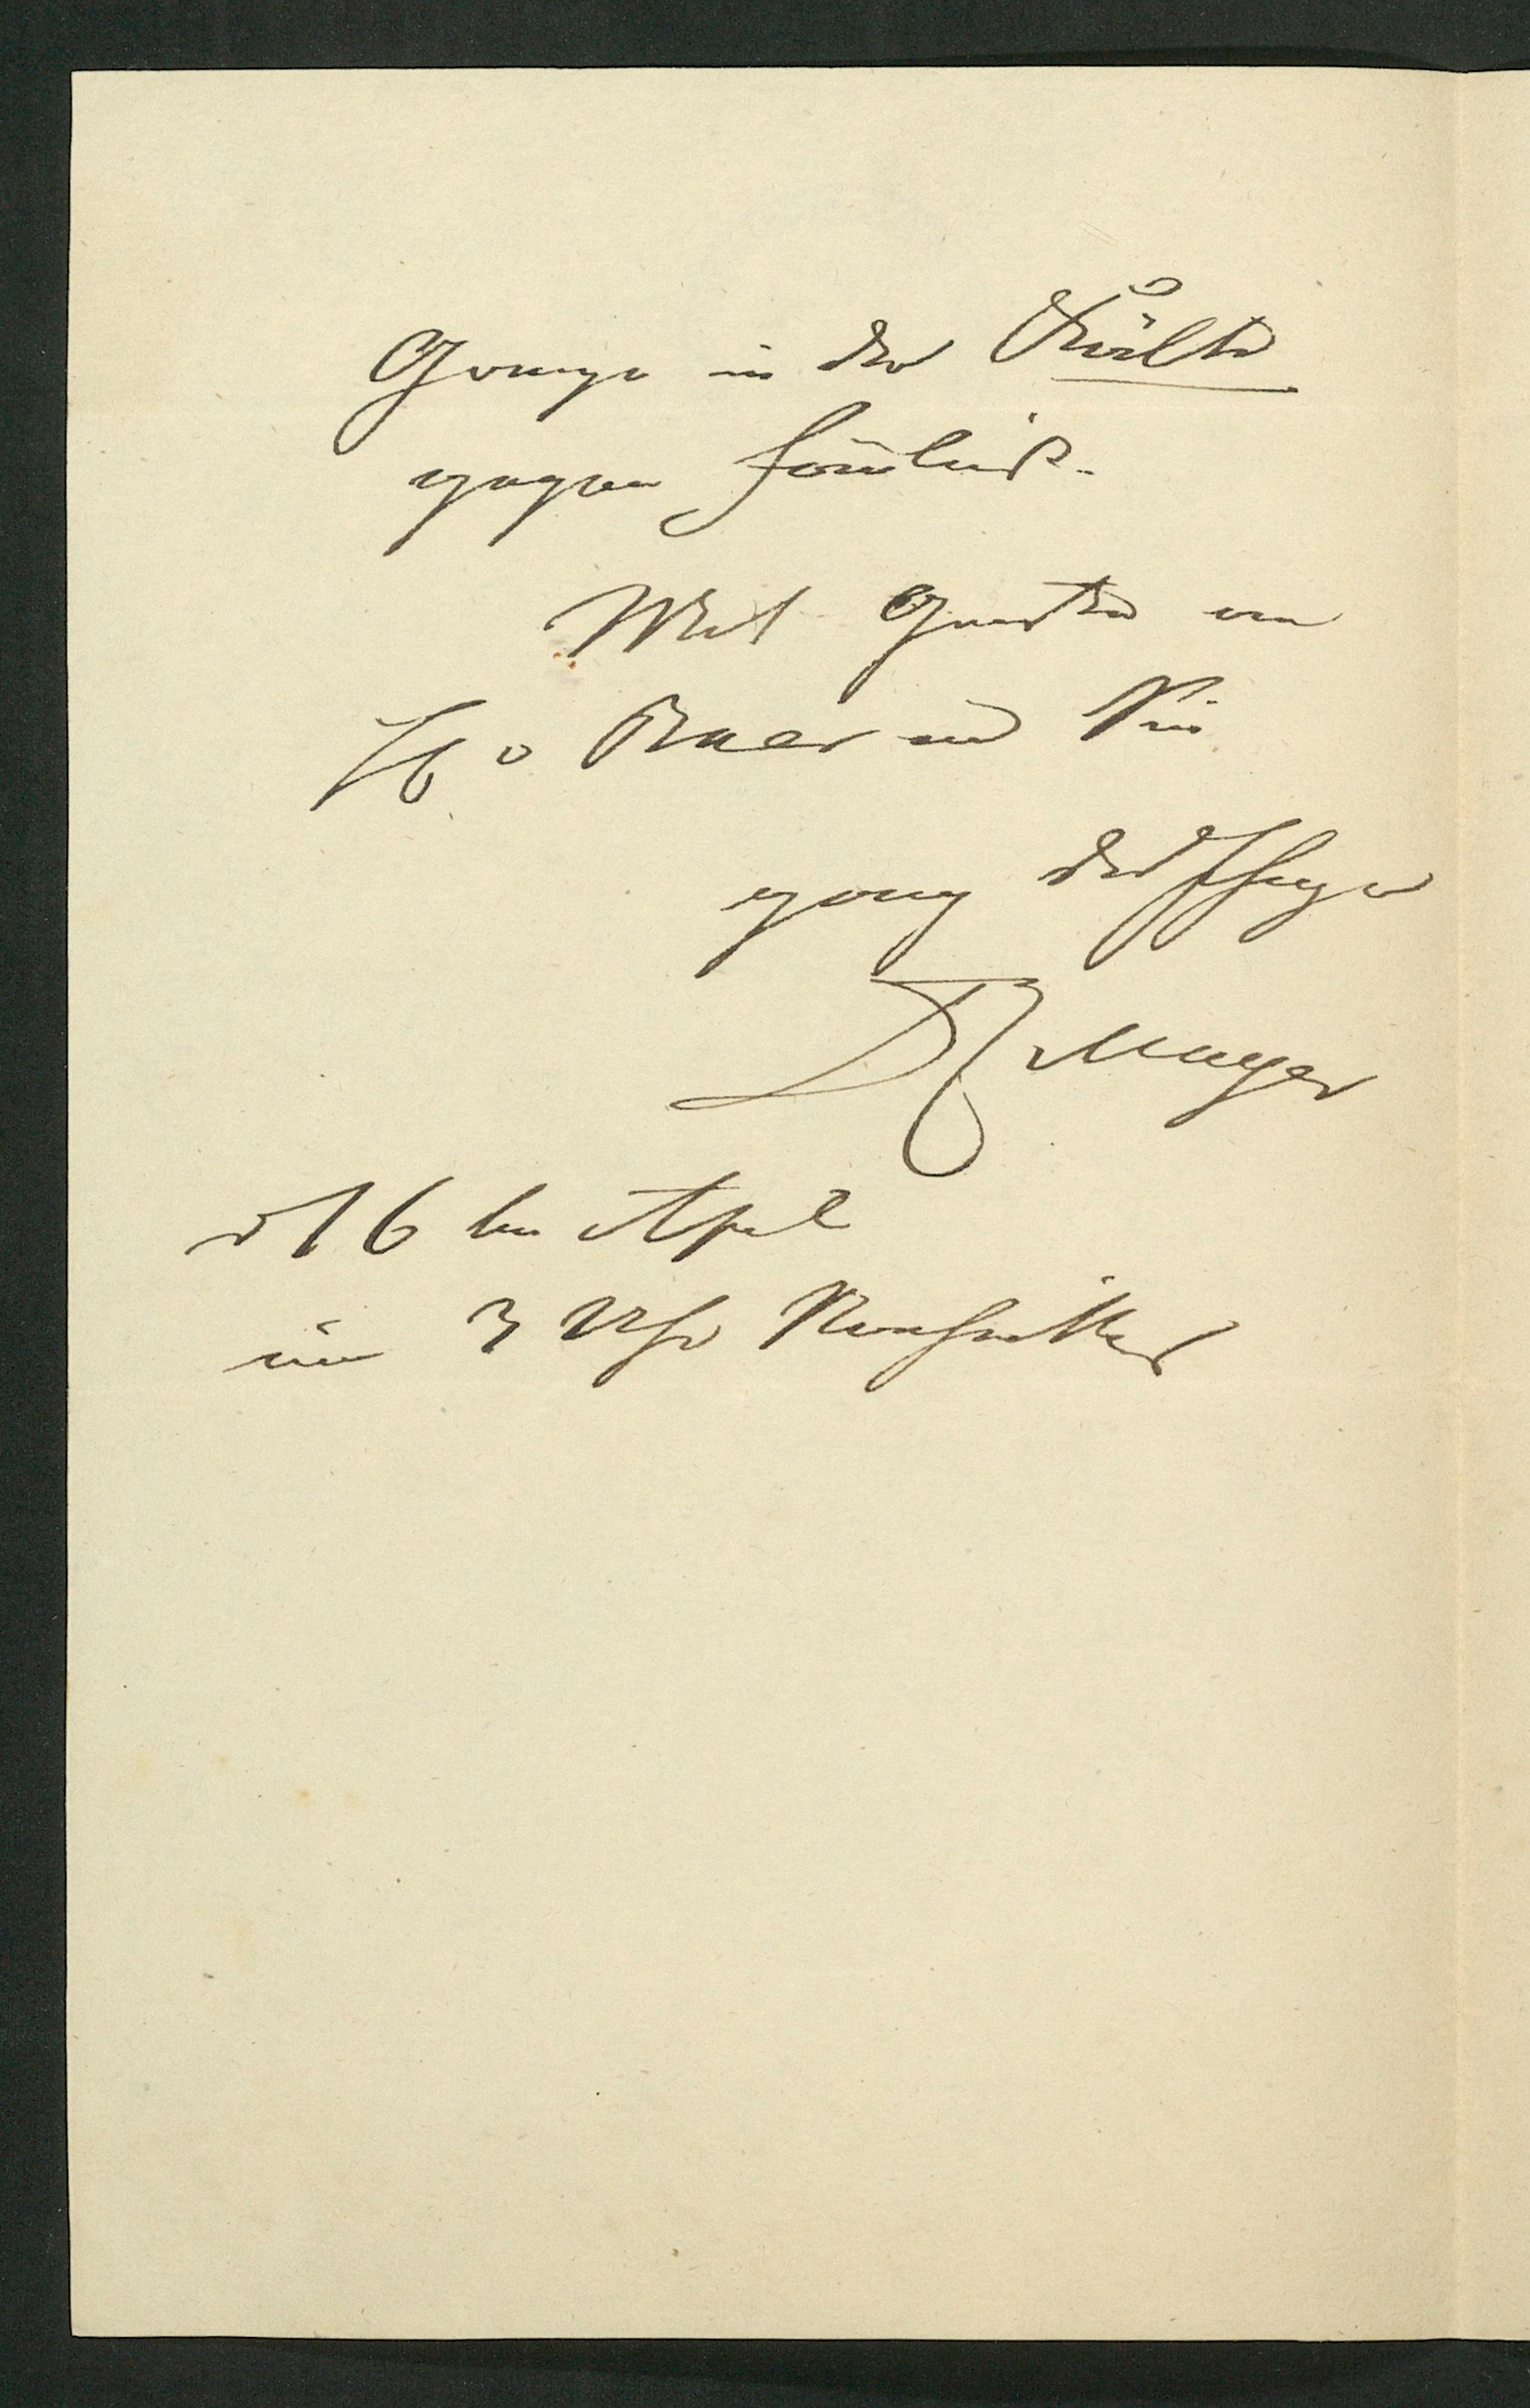 Gange in der Kälte
gegen Fäulniß.
Mit Grüßen an
H. v Baer und Sie
ganz der Ihrige
Mayer
d 16ten April
um 3 Uhr Nachmittag